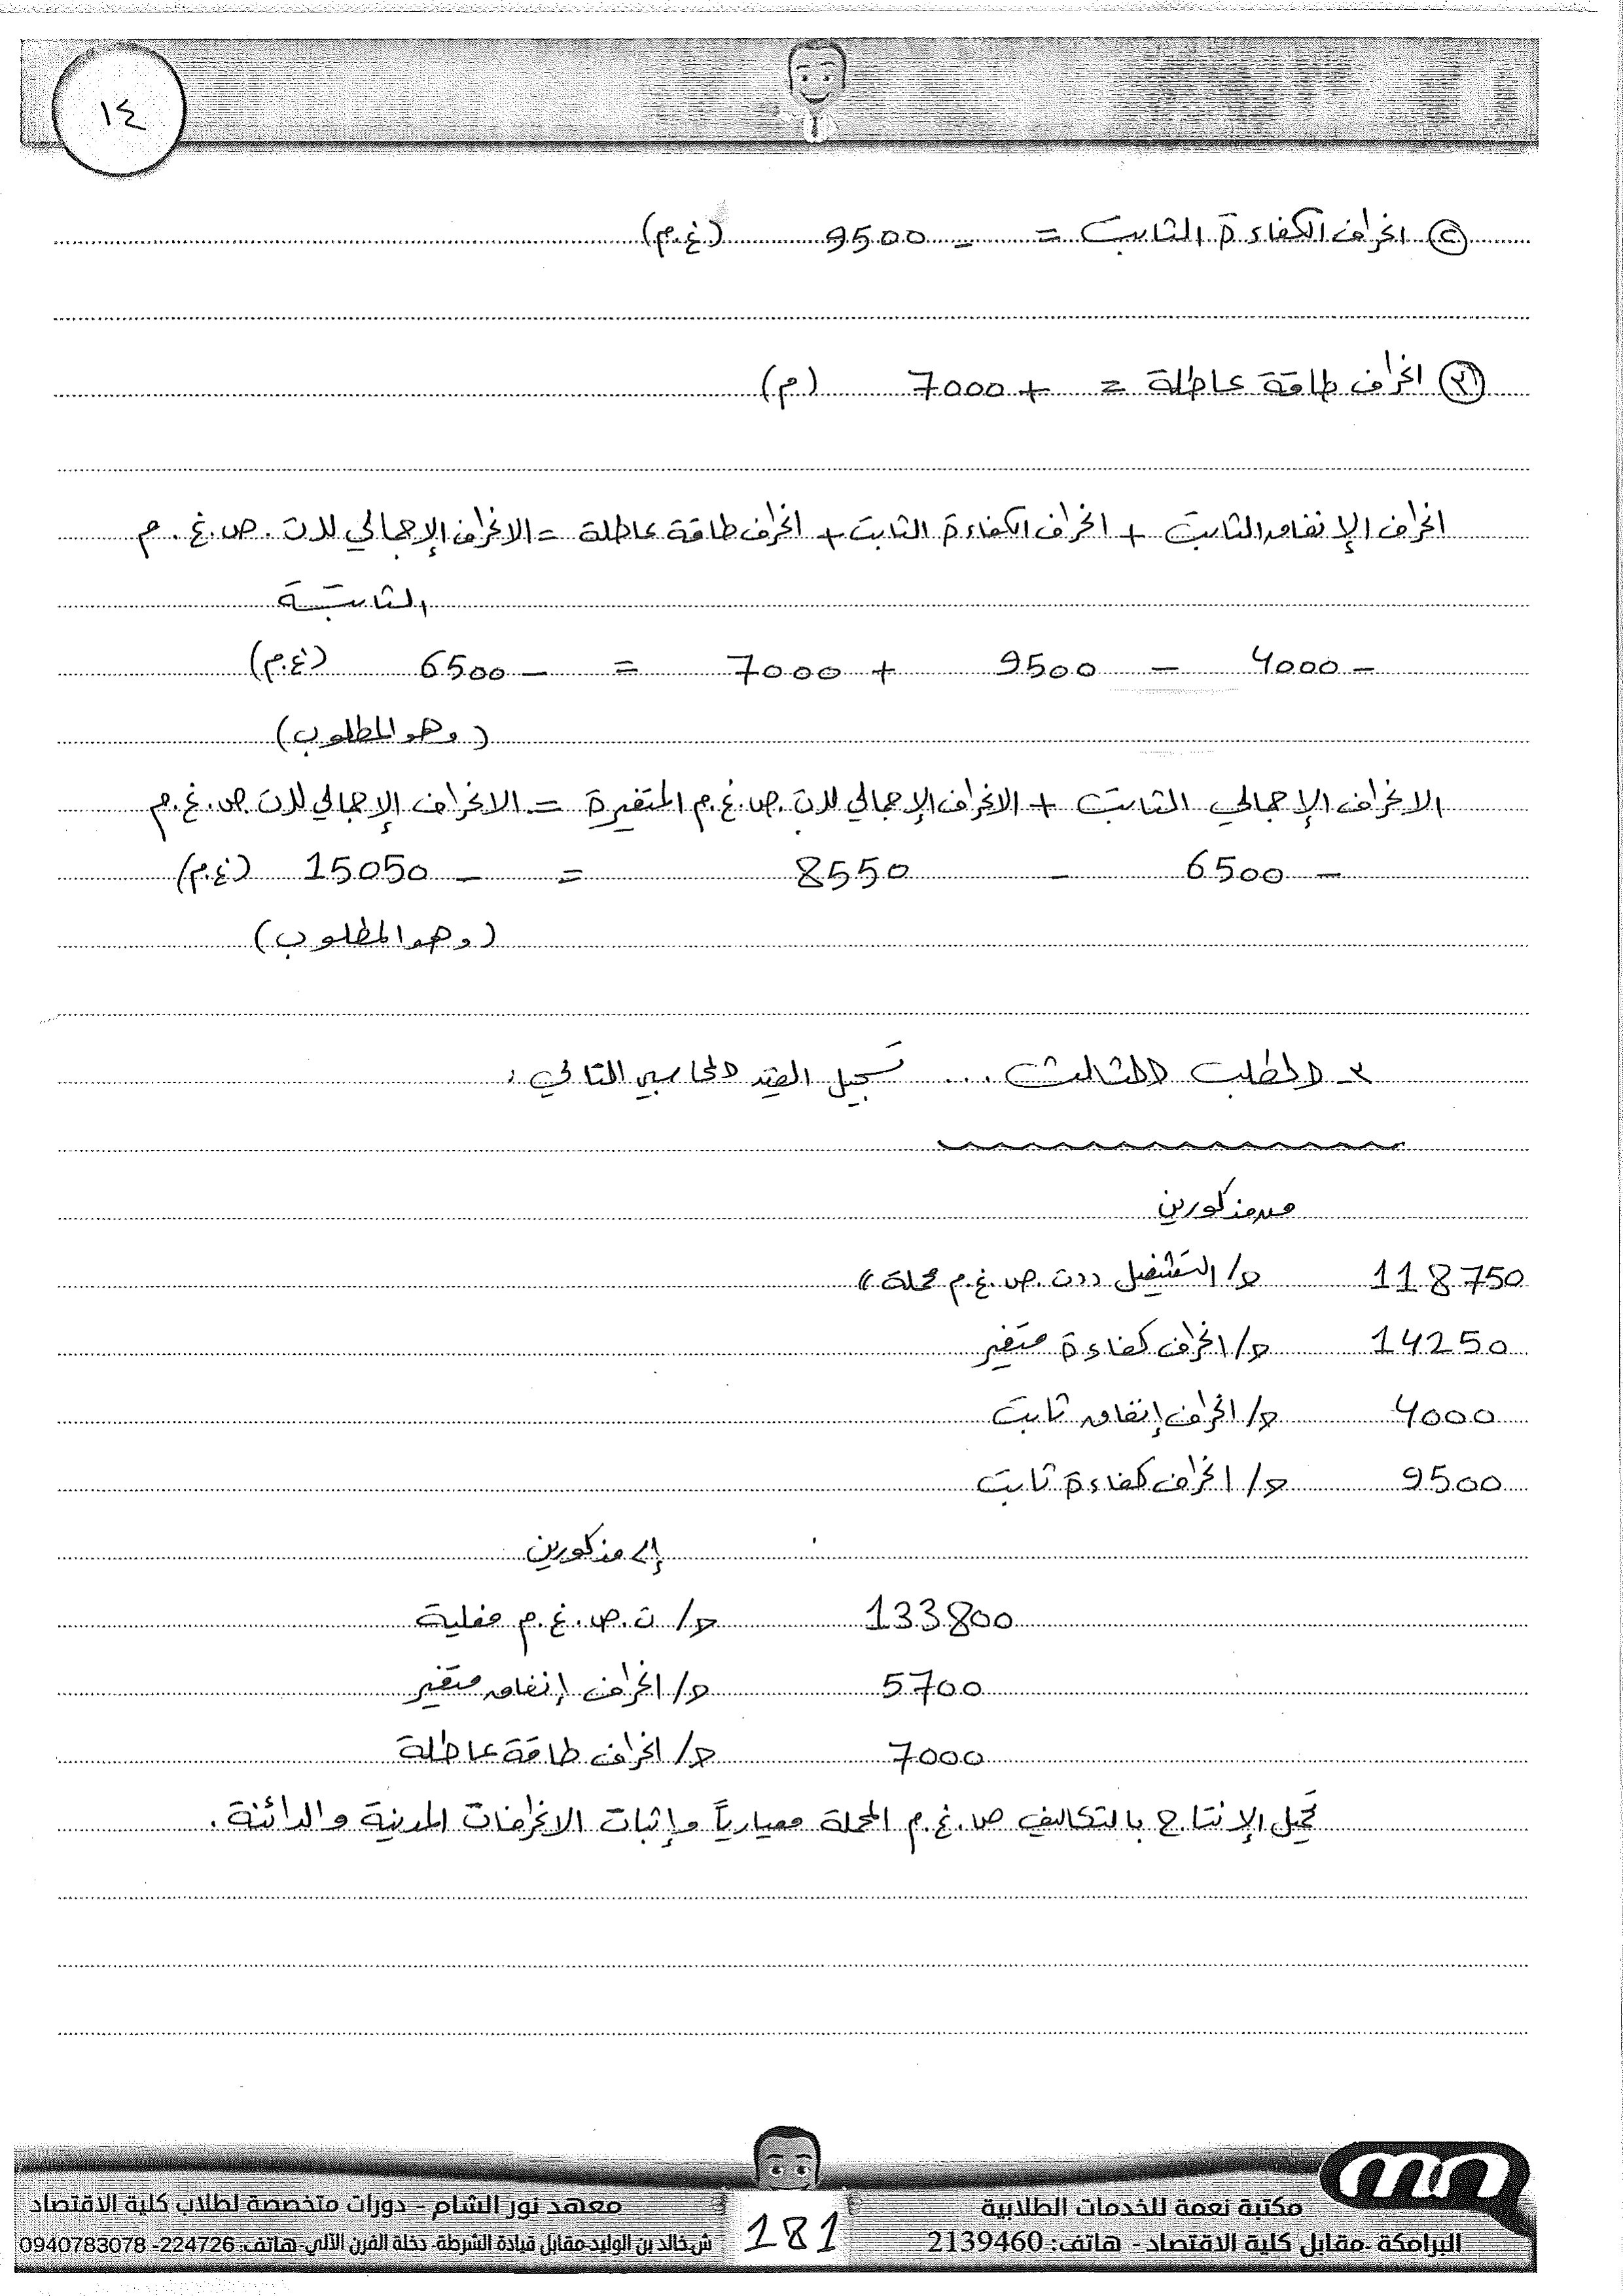 ١٤
② انحراف الكفاءة الثابت = - 9500 (غ.م)
③ انحراف طاقة عاطلة = + 7000 (م)
انحراف الإنفاق الثابت + انحراف الكفاءة الثابت + انحراف طاقة عاطلة = الانحراف الإجمالي للـ ت.ص.غ.م
الثابتة
- 4000 - 9500 + 7000 = - 6500 (غ.م)
(وهو المطلوب)
الانحراف الإجمالي الثابت + الانحراف الإجمالي للـ ت.ص.غ.م المتغيرة = الانحراف الإجمالي للـ ت.ص.غ.م
- 6500 - 8550 = - 15050 (غ.م)
(وهو المطلوب)
٣- المطلب الثالث ... تسجيل القيد المحاسبي التالي :
من مذكورين
118750 ح/ التشغيل ((ت.ص.غ.م محملة))
14250 ح/ انحراف كفاءة متغير
4000 ح/ انحراف إنفاق ثابت
9500 ح/ انحراف كفاءة ثابت
إلى مذكورين
133800 ح/ ت.ص.غ.م فعلية
5700 ح/ انحراف إنفاق متغير
7000 ح/ انحراف طاقة عاطلة
تحميل الإنتاج بالتكاليف ص.غ.م المحملة معيارياً وإثبات الانحرافات المدينة والدائنة.
مكتبة نعمة للخدمات الطلابية
البرامكة -مقابل كلية الاقتصاد - هاتف: 2139460
181
معهد نور الشام - دورات متخصصة لطلاب كلية الاقتصاد
ش.خالد بن الوليد-مقابل قيادة الشرطة- دخلة الفرن الآلي-هاتف: 224726- 0940783078